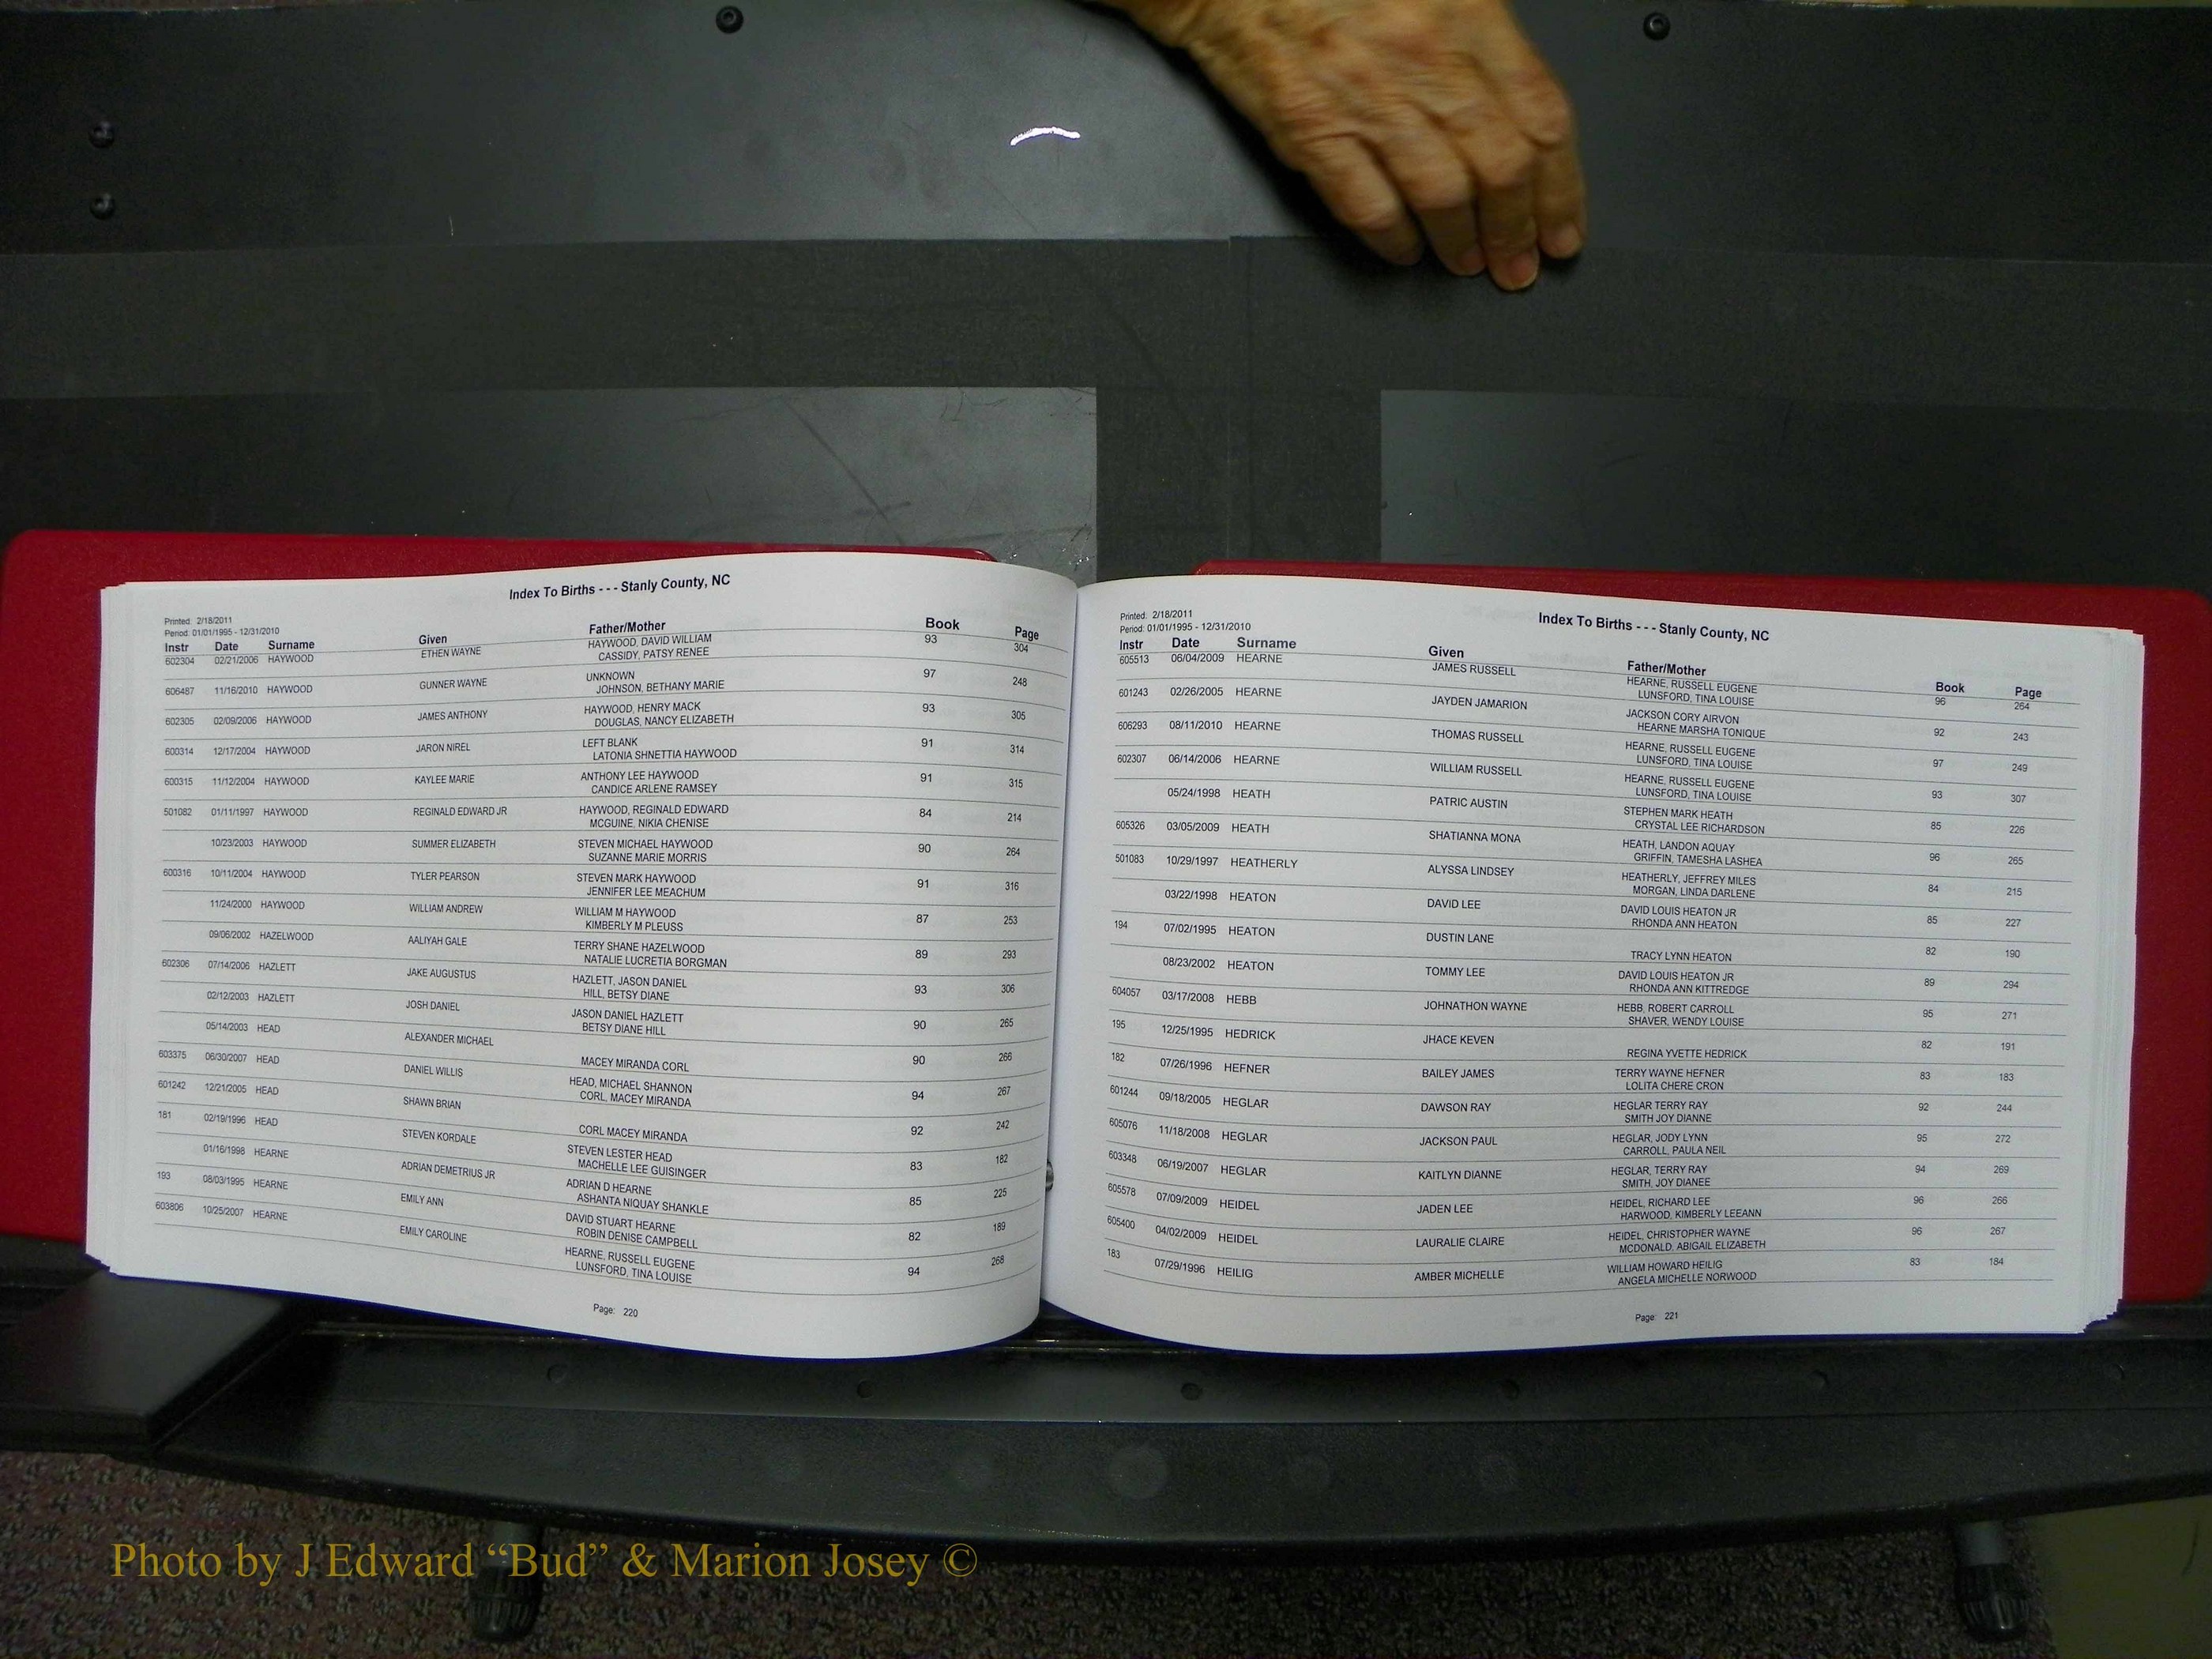 Index To Births - - - Stanly County, NC
Printed: 2/18/2011
Period: 01/01/1995 - 12/31/2010
Instr Date Surname Given Father/Mother Book Page
602304 02/21/2006 HAYWOOD ETHEN WAYNE HAYWOOD, DAVID WILLIAM 93 304
CASSIDY, PATSY RENEE
606487 11/16/2010 HAYWOOD GUNNER WAYNE UNKNOWN 97 248
JOHNSON, BETHANY MARIE
602305 02/09/2006 HAYWOOD JAMES ANTHONY HAYWOOD, HENRY MACK 93 305
DOUGLAS, NANCY ELIZABETH
600314 12/17/2004 HAYWOOD JARON NIREL LEFT BLANK 91 314
LATONIA SHNETTIA HAYWOOD
600315 11/12/2004 HAYWOOD KAYLEE MARIE ANTHONY LEE HAYWOOD 91 315
CANDICE ARLENE RAMSEY
501082 01/11/1997 HAYWOOD REGINALD EDWARD JR HAYWOOD, REGINALD EDWARD 84 214
MCGUINE, NIKIA CHENISE
10/23/2003 HAYWOOD SUMMER ELIZABETH STEVEN MICHAEL HAYWOOD 90 264
SUZANNE MARIE MORRIS
600316 10/11/2004 HAYWOOD TYLER PEARSON STEVEN MARK HAYWOOD 91 316
JENNIFER LEE MEACHUM
11/24/2000 HAYWOOD WILLIAM ANDREW WILLIAM M HAYWOOD 87 253
KIMBERLY M PLEUSS
09/06/2002 HAZELWOOD AALIYAH GALE TERRY SHANE HAZELWOOD 89 293
NATALIE LUCRETIA BORGMAN
602306 07/14/2006 HAZLETT JAKE AUGUSTUS HAZLETT, JASON DANIEL 93 306
HILL, BETSY DIANE
02/12/2003 HAZLETT JOSH DANIEL JASON DANIEL HAZLETT 90 265
BETSY DIANE HILL
05/14/2003 HEAD ALEXANDER MICHAEL 90 266
MACEY MIRANDA CORL
603375 06/30/2007 HEAD DANIEL WILLIS HEAD, MICHAEL SHANNON 94 267
CORL, MACEY MIRANDA
601242 12/21/2005 HEAD SHAWN BRIAN 92 242
CORL MACEY MIRANDA
181 02/19/1996 HEAD STEVEN KORDALE STEVEN LESTER HEAD 83 182
MACHELLE LEE GUISINGER
01/16/1998 HEARNE ADRIAN DEMETRIUS JR ADRIAN D HEARNE 85 225
ASHANTA NIQUAY SHANKLE
193 08/03/1995 HEARNE EMILY ANN DAVID STUART HEARNE 82 189
ROBIN DENISE CAMPBELL
603806 10/25/2007 HEARNE EMILY CAROLINE HEARNE, RUSSELL EUGENE 94 268
LUNSFORD, TINA LOUISE
Page: 220
Index To Births - - - Stanly County, NC
Printed: 2/18/2011
Period: 01/01/1995 - 12/31/2010
Instr Date Surname Given Father/Mother Book Page
605513 06/04/2009 HEARNE JAMES RUSSELL HEARNE, RUSSELL EUGENE 96 264
LUNSFORD, TINA LOUISE
601243 02/26/2005 HEARNE JAYDEN JAMARION JACKSON CORY AIRVON 92 243
HEARNE MARSHA TONIQUE
606293 08/11/2010 HEARNE THOMAS RUSSELL HEARNE, RUSSELL EUGENE 97 249
LUNSFORD, TINA LOUISE
602307 06/14/2006 HEARNE WILLIAM RUSSELL HEARNE, RUSSELL EUGENE 93 307
LUNSFORD, TINA LOUISE
05/24/1998 HEATH PATRIC AUSTIN STEPHEN MARK HEATH 85 226
CRYSTAL LEE RICHARDSON
605326 03/05/2009 HEATH SHATIANNA MONA HEATH, LANDON AQUAY 96 265
GRIFFIN, TAMESHA LASHEA
501083 10/29/1997 HEATHERLY ALYSSA LINDSEY HEATHERLY, JEFFREY MILES 84 215
MORGAN, LINDA DARLENE
03/22/1998 HEATON DAVID LEE DAVID LOUIS HEATON JR 85 227
RHONDA ANN HEATON
194 07/02/1995 HEATON DUSTIN LANE 82 190
TRACY LYNN HEATON
08/23/2002 HEATON TOMMY LEE DAVID LOUIS HEATON JR 89 294
RHONDA ANN KITTREDGE
604057 03/17/2008 HEBB JOHNATHON WAYNE HEBB, ROBERT CARROLL 95 271
SHAVER, WENDY LOUISE
195 12/25/1995 HEDRICK JHACE KEVEN 82 191
REGINA YVETTE HEDRICK
182 07/26/1996 HEFNER BAILEY JAMES TERRY WAYNE HEFNER 83 183
LOLITA CHERE CRON
601244 09/18/2005 HEGLAR DAWSON RAY HEGLAR TERRY RAY 92 244
SMITH JOY DIANNE
605076 11/18/2008 HEGLAR JACKSON PAUL HEGLAR, JODY LYNN 95 272
CARROLL, PAULA NEIL
603348 06/19/2007 HEGLAR KAITLYN DIANNE HEGLAR, TERRY RAY 94 269
SMITH, JOY DIANEE
605578 07/09/2009 HEIDEL JADEN LEE HEIDEL, RICHARD LEE 96 266
HARWOOD, KIMBERLY LEEANN
605400 04/02/2009 HEIDEL LAURALIE CLAIRE HEIDEL, CHRISTOPHER WAYNE 96 267
MCDONALD, ABIGAIL ELIZABETH
183 07/29/1996 HEILIG AMBER MICHELLE WILLIAM HOWARD HEILIG 83 184
ANGELA MICHELLE NORWOOD
Page: 221
Photo by J Edward “Bud” & Marion Josey ©